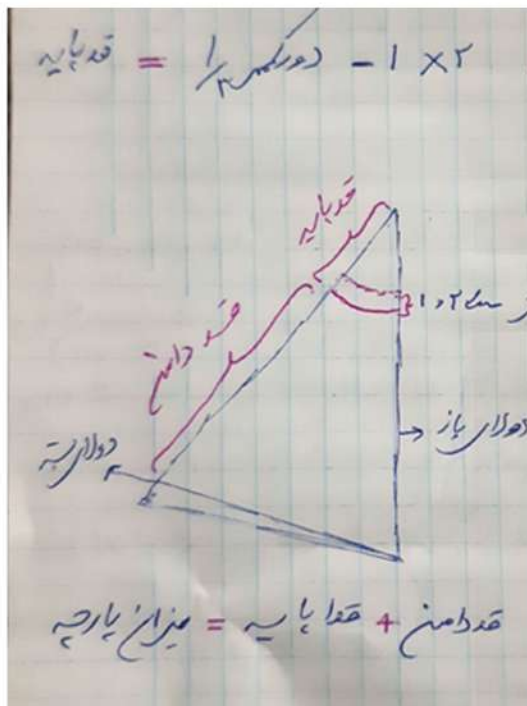 قد پایه = دور کمر ۱/۳ - ۱ × ۲
قد پایه
قد دامن
۱,۲ سانت
دولای باز
دولای بسته
قد دامن + قد پایه = میزان پارچه